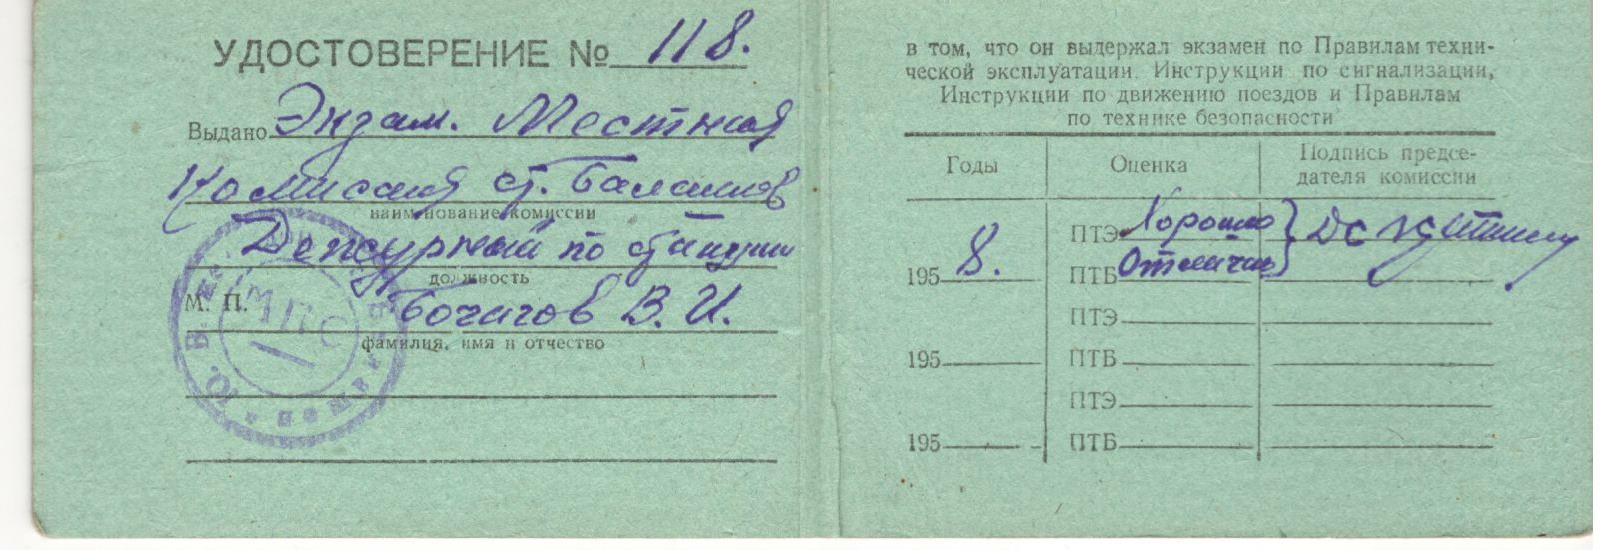 УДОСТОВЕРЕНИЕ № 118.
Выдано Экзам. Местная
Комиссия ст. Балашов
наименование комиссии
Дежурный по станции
должность
М. П. Бочагов В. И.
фамилия, имя и отчество
МПС
в том, что он выдержал экзамен по Правилам техни-
ческой эксплуатации. Инструкции по сигнализации,
Инструкции по движению поездов и Правилам
по технике безопасности
Годы Оценка Подпись предсе-
дателя комиссии
ПТЭ Хорошо
1958. ПТБ Отлично
ПТЭ
195 ПТБ
ПТЭ
195 ПТБ